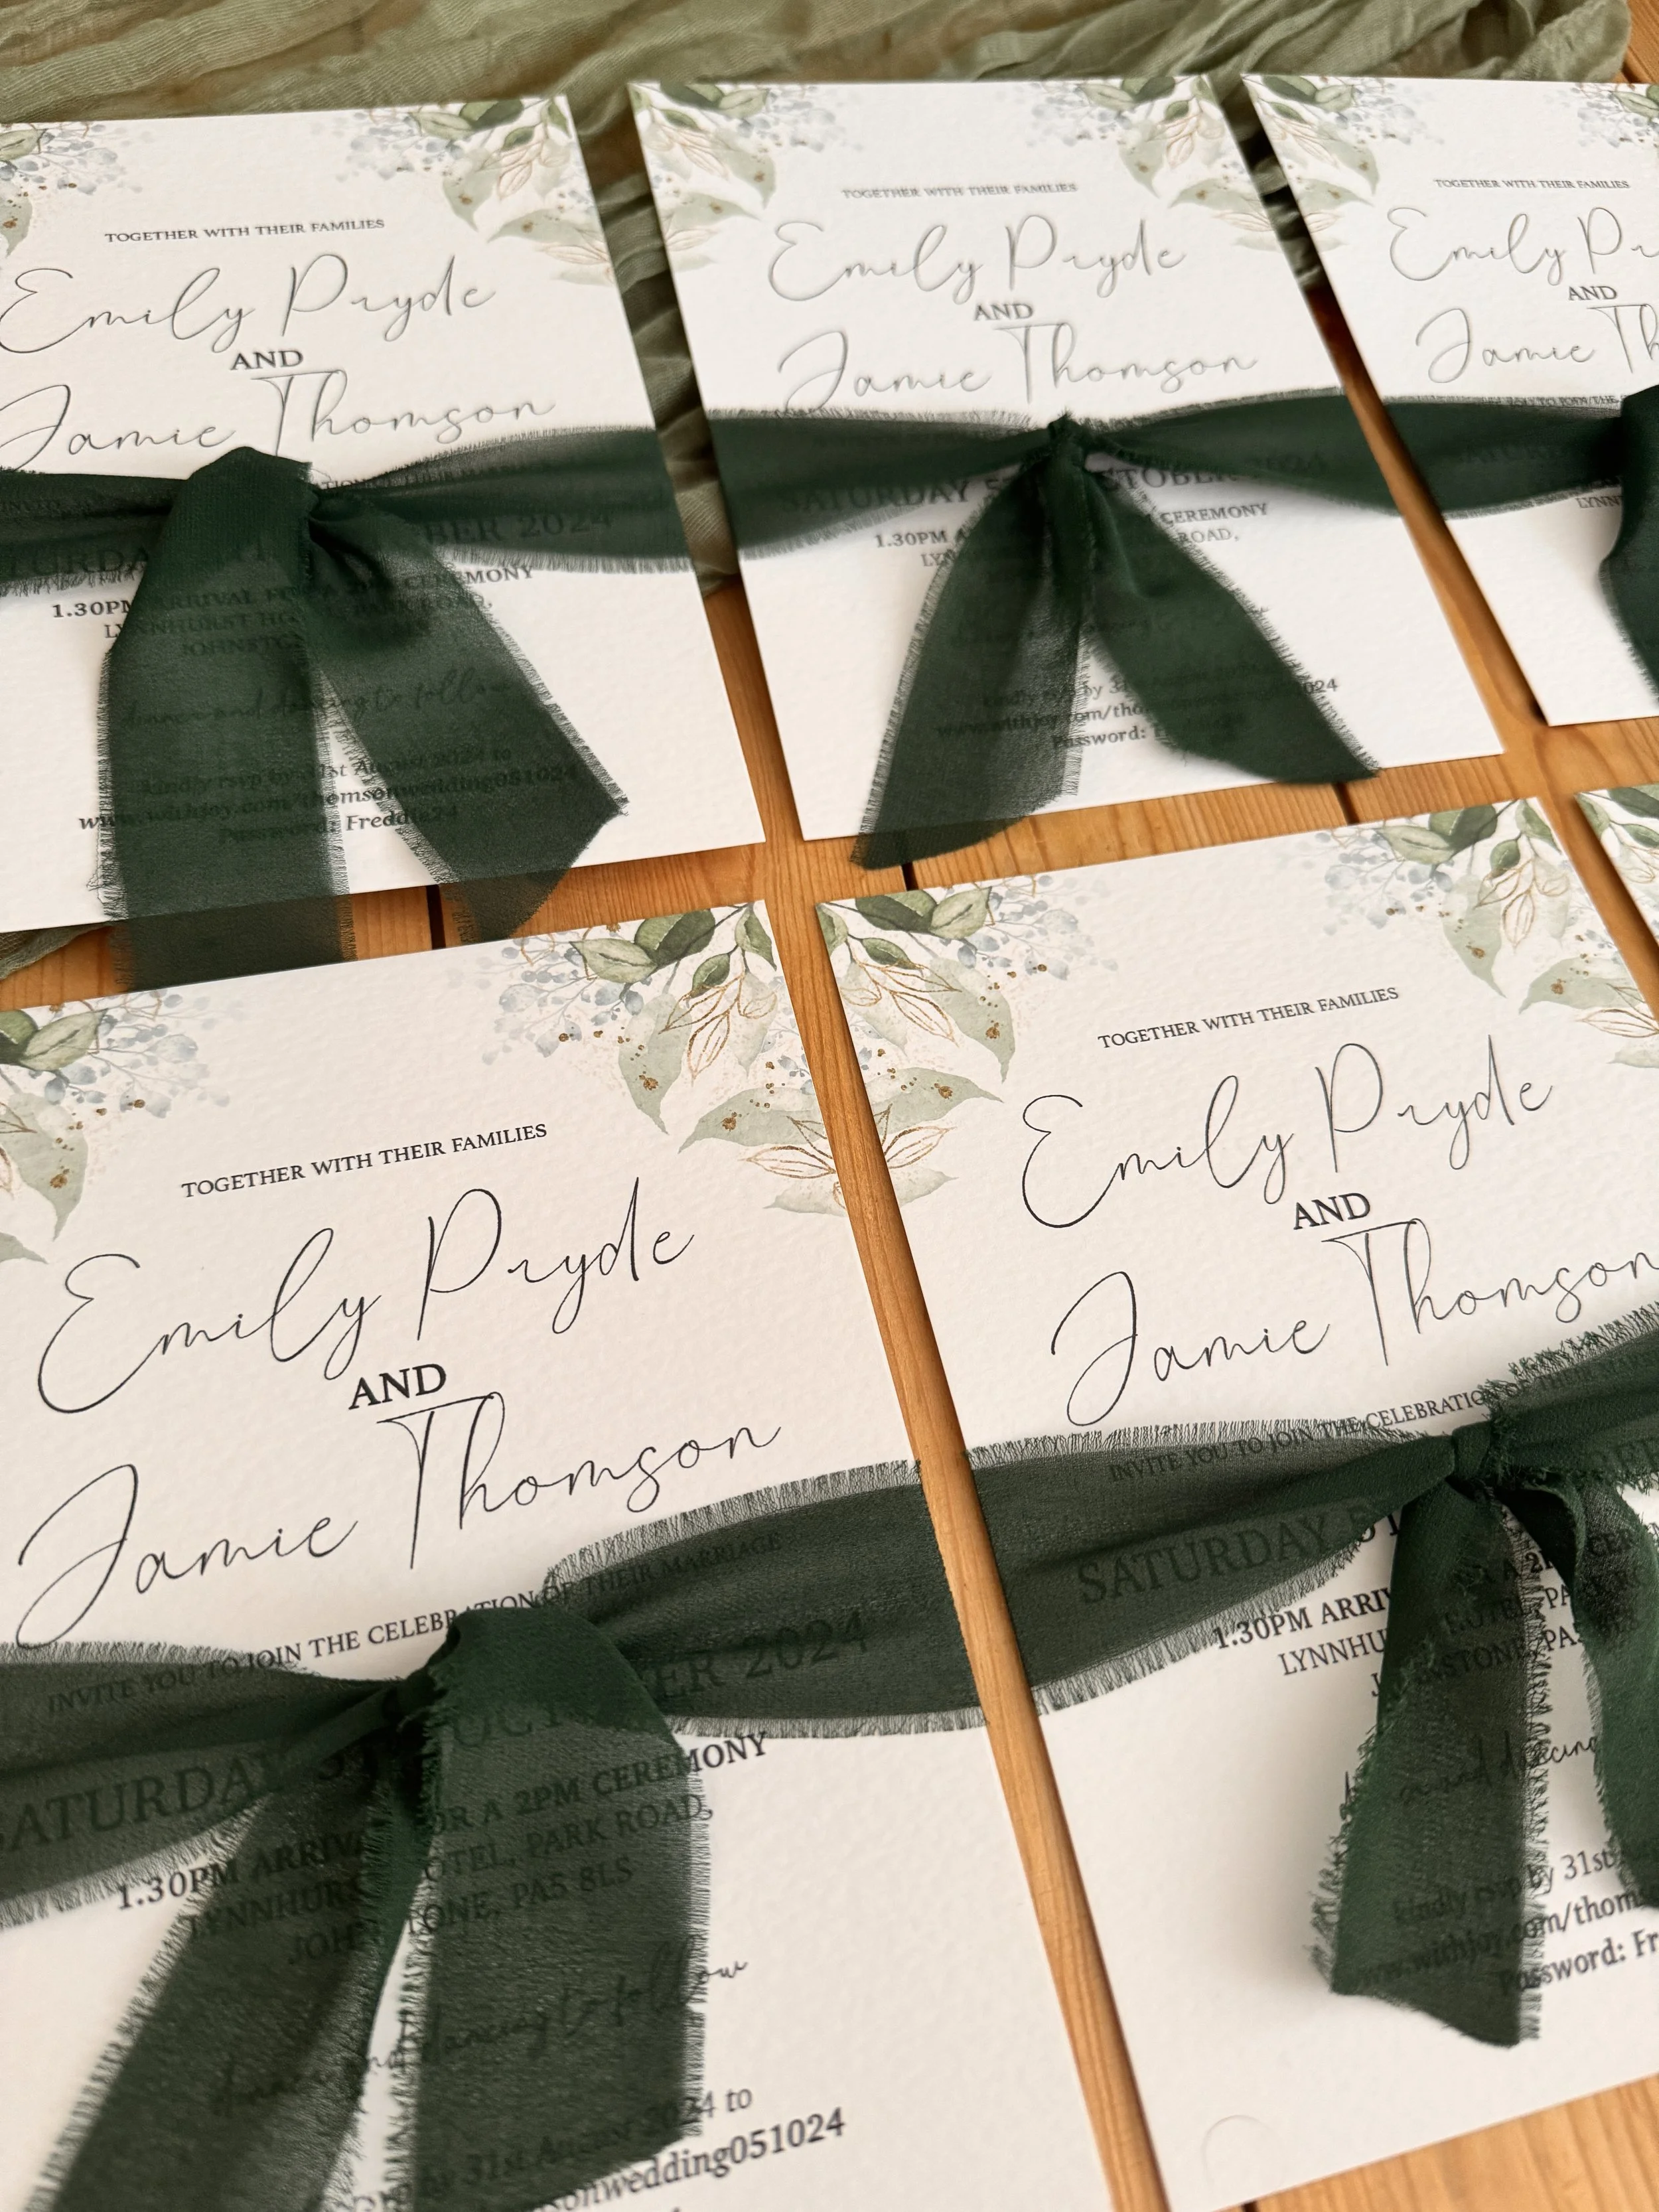 TOGETHER WITH THEIR FAMILIES
Emily Pryde
AND
Jamie Thomson
SATURDAY BER 2024
1.30PM ARRIVAL 2PM CEREMONY
LYNNHURST PARK ROAD,
JOHNST
dinner and dancing to follow
kindly rsvp by 31st August 2024 to
www.withjoy.com/thomsonwedding051024
Password: Freddie24
TOGETHER WITH THEIR FAMILIES
Emily Pryde
AND
Jamie Thomson
SATURDAY 5 OCTOBER 2024
1.30PM A CEREMONY
LYN ROAD,
kindly rsvp by 31
www.withjoy.com/tho 024
Password:
TOGETHER WITH THEIR FAMILIES
Emily Pr
AND
Jamie Th
TOGETHER WITH THEIR FAMILIES
Emily Pryde
AND
Jamie Thomson
INVITE YOU TO JOIN THE CELEBRATION OF THEIR MARRIAGE
SATURDAY 5TH OCTOBER 2024
1.30PM ARRIVAL FOR A 2PM CEREMONY
LYNNHURST HOTEL, PARK ROAD,
JOHNSTONE, PA5 8LS
dinner and dancing to follow
by 31st August 2024 to
onwedding051024
TOGETHER WITH THEIR FAMILIES
Emily Pryde
AND
Jamie Thomson
INVITE YOU TO JOIN THE CELEBRATION OF THEIR
SATURDAY 5T
1.30PM ARRIV A 2PM CER
LYNNHU HOTEL, PA
STONE, PA5
and dancing
kindly rsvp by 31st
www.withjoy.com/thoms
Password: Fr